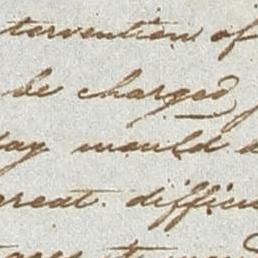 tervention of
be charged
day would
great difficu